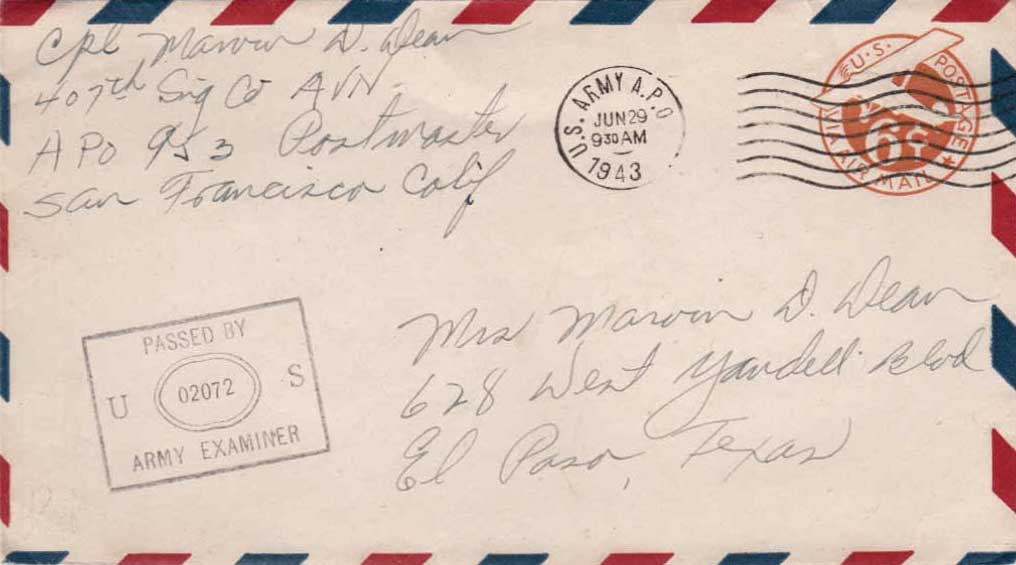 Cpl Marvin D. Dean
407th Sig Co AVN.
APO 953 Postmaster
San Francisco Calif
U.S. ARMY A.P.O
JUN 29
930 AM
1943
U.S. POSTAGE
6¢
VIA AIR MAIL
Mrs Marvin D. Dean
628 West Yandell Blvd
El Paso, Texas
PASSED BY
U 02072 S
ARMY EXAMINER